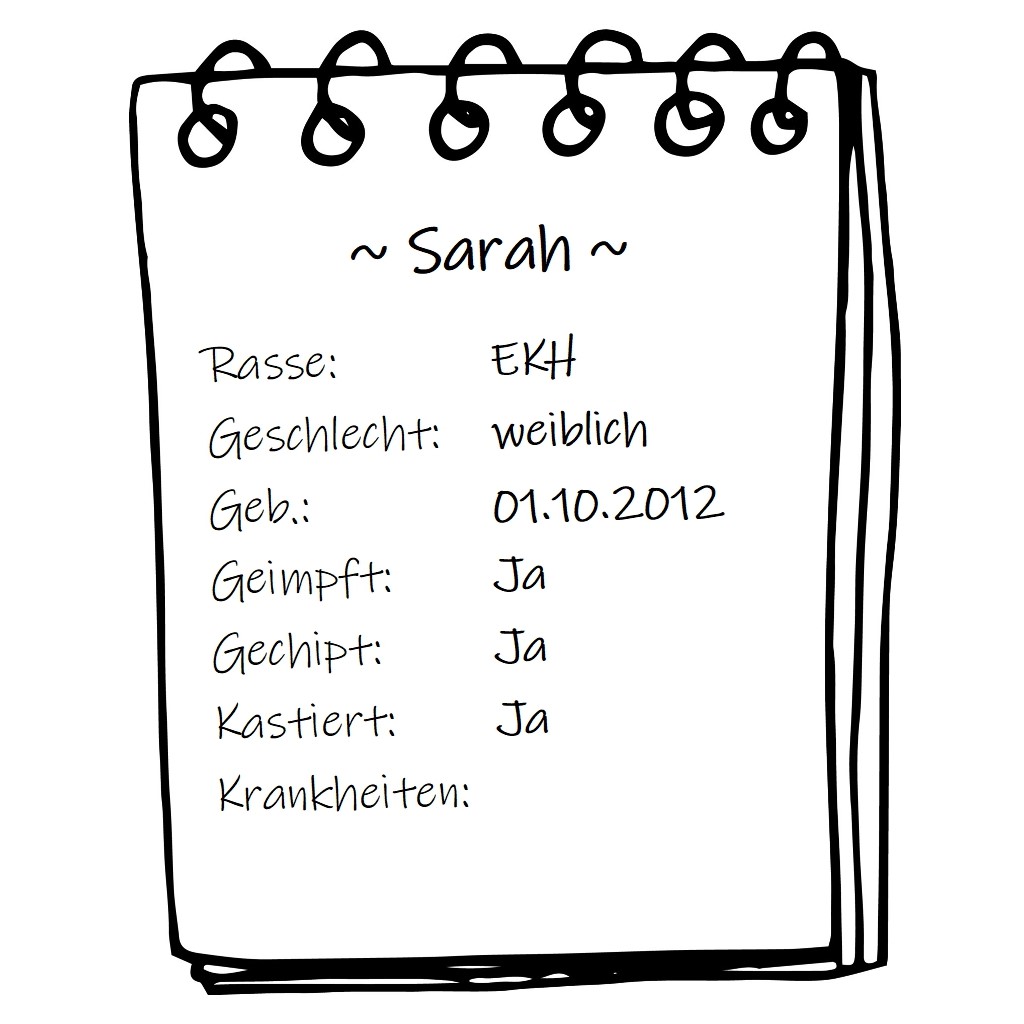 ~ Sarah ~
Rasse: EKH
Geschlecht: weiblich
Geb.: 01.10.2012
Geimpft: Ja
Gechipt: Ja
Kastiert: Ja
Krankheiten: